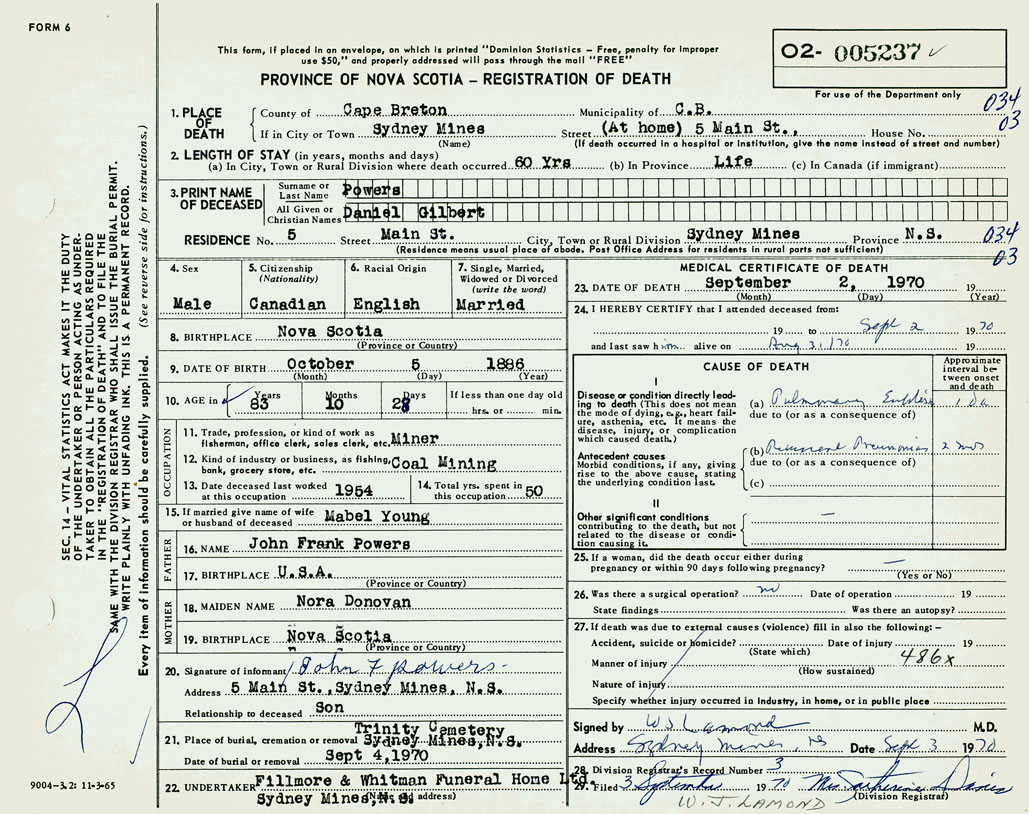 FORM 6
This form, if placed in an envelope, on which is printed "Dominion Statistics – Free, penalty for improper
use $50," and properly addressed will pass through the mail "FREE"
PROVINCE OF NOVA SCOTIA – REGISTRATION OF DEATH
02- 005237 ✓
For use of the Department only
034
03
1. PLACE OF DEATH
County of Cape Breton Municipality of C.B.
If in City or Town Sydney Mines Street (At home) 5 Main St., House No.
(Name) (If death occurred in a hospital or institution, give the name instead of street and number)
2. LENGTH OF STAY (in years, months and days)
(a) In City, Town or Rural Division where death occurred 60 Yrs (b) In Province Life (c) In Canada (if immigrant)
3. PRINT NAME OF DECEASED
Surname or Last Name Powers
All Given or Christian Names Daniel Gilbert
RESIDENCE No. 5 Street Main St. City, Town or Rural Division Sydney Mines Province N.S.
(Residence means usual place of abode. Post Office Address for residents in rural parts not sufficient)
034
03
4. Sex
Male
5. Citizenship
(Nationality)
Canadian
6. Racial Origin
English
7. Single, Married,
Widowed or Divorced
(write the word)
Married
8. BIRTHPLACE Nova Scotia
(Province or Country)
9. DATE OF BIRTH October 5 1886
(Month) (Day) (Year)
10. AGE in Years Months Days If less than one day
83 10 28 hrs. or min.
OCCUPATION
11. Trade, profession, or kind of work as
fisherman, office clerk, sales clerk, etc. Miner
12. Kind of industry or business, as fishing,
bank, grocery store, etc. Coal Mining
13. Date deceased last worked
at this occupation 1954
14. Total yrs. spent in
this occupation 50
15. If married give name of wife
or husband of deceased Mabel Young
FATHER
16. NAME John Frank Powers
17. BIRTHPLACE U.S.A.
(Province or Country)
MOTHER
18. MAIDEN NAME Nora Donovan
19. BIRTHPLACE Nova Scotia
(Province or Country)
20. Signature of informant John F Powers
Address 5 Main St., Sydney Mines, N.S.
Relationship to deceased Son
21. Place of burial, cremation or removal Trinity Cemetery
Sydney Mines, N.S.
Date of burial or removal Sept 4, 1970
22. UNDERTAKER Fillmore & Whitman Funeral Home Ltd.
Sydney Mines, N.S.
(Name and address)
MEDICAL CERTIFICATE OF DEATH
23. DATE OF DEATH September 2, 1970 19
(Month) (Day) (Year)
24. I HEREBY CERTIFY that I attended deceased from:
19 to Sept 2 1970
and last saw him alive on Aug 31/70 19
CAUSE OF DEATH
Approximate
interval be-
tween onset
and death
I
Disease or condition directly lead-
ing to death (This does not mean
the mode of dying, e.g., heart fail-
ure, asthenia, etc. It means the
disease, injury, or complication
which caused death.)
(a) Pulmonary 1 Da
due to (or as a consequence of)
Antecedent causes
Morbid conditions, if any, giving
rise to the above cause, stating
the underlying condition last.
(b) Pneumonia 2 mos
due to (or as a consequence of)
(c)
II
Other significant conditions
contributing to the death, but not
related to the disease or condi-
tion causing it.
–
25. If a woman, did the death occur either during
pregnancy or within 90 days following pregnancy? –
(Yes or No)
26. Was there a surgical operation? no Date of operation 19
State findings Was there an autopsy?
27. If death was due to external causes (violence) fill in also the following:–
Accident, suicide or homicide? Date of injury 19
(State which)
Manner of injury 486x
(How sustained)
Nature of injury
Specify whether injury occurred in industry, in home, or in public place
Signed by W J Lamond M.D.
Address Sydney Mines, NS Date Sept 3 1970
28. Division Registrar's Record Number 3
29. Filed 3 September 1970 Mrs. Catherine Davies
(Division Registrar)
W. J. LAMOND
SEC. 14 – VITAL STATISTICS ACT MAKES IT THE DUTY
OF THE UNDERTAKER OR PERSON ACTING AS UNDER-
TAKER TO OBTAIN ALL THE PARTICULARS REQUIRED
IN THE "REGISTRATION OF DEATH" AND TO FILE THE
SAME WITH THE DIVISION REGISTRAR WHO SHALL ISSUE THE BURIAL PERMIT.
WRITE PLAINLY WITH UNFADING INK. THIS IS A PERMANENT RECORD.
Every item of information should be carefully supplied. (See reverse side for instructions.)
9004-3.2: 11-3-65